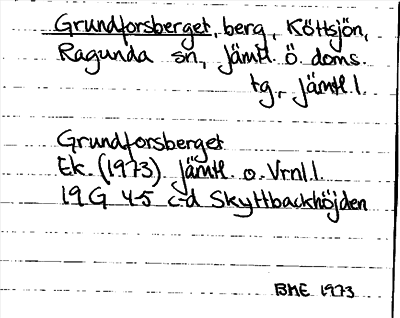 Grundforsberget, berg, Köttsjön,
Ragunda sn, Jämtl. ö. doms.
tg., Jämtl. l.
Grundforsberget
Ek. (1973) Jämtl. o. Vrnl. l.
19 G 4-5 c-d Skyttbackhöjden
BME 1973